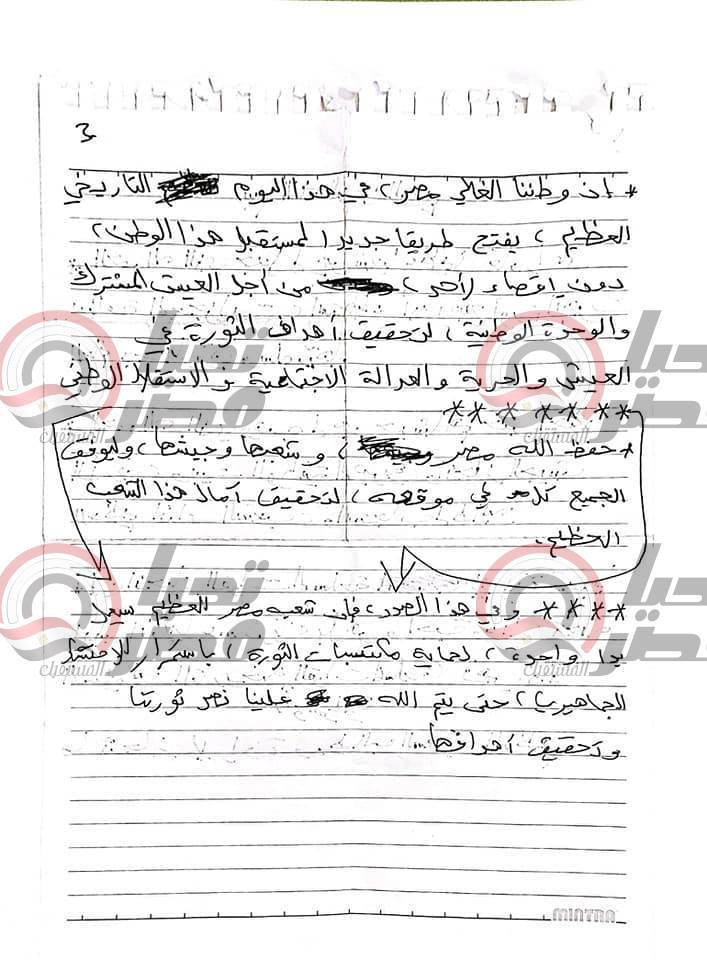 3
* إن وطننا الغالي مصر، في هذا اليوم التاريخي
العظيم، يفتح طريقا جديدا لمستقبل هذا الوطن،
دون إقصاء لأحد، من أجل العيش المشترك
والوحدة الوطنية، لتحقيق أهداف الثورة في
العيش والحرية والعدالة الاجتماعية والاستقلال الوطني
* * * * * *
* حفظ الله مصر، وشعبها وجيشها، وليوفق
الجميع كل في موقعه، لتحقيق آمال هذا الشعب
العظيم.
* * * * وفي هذا الصدد، فإن شعب مصر العظيم سيظل
يدا واحدة، لحماية مكتسبات الثورة، باستمرار الاحتشاد
الجماهيري، حتى يتم الله علينا نصر ثورتنا
وتحقيق أهدافها..
MINTRA
تحيا مصر
المستقبل
تحيا مصر
المستقبل
تحيا مصر
المستقبل
تحيا مصر
المستقبل